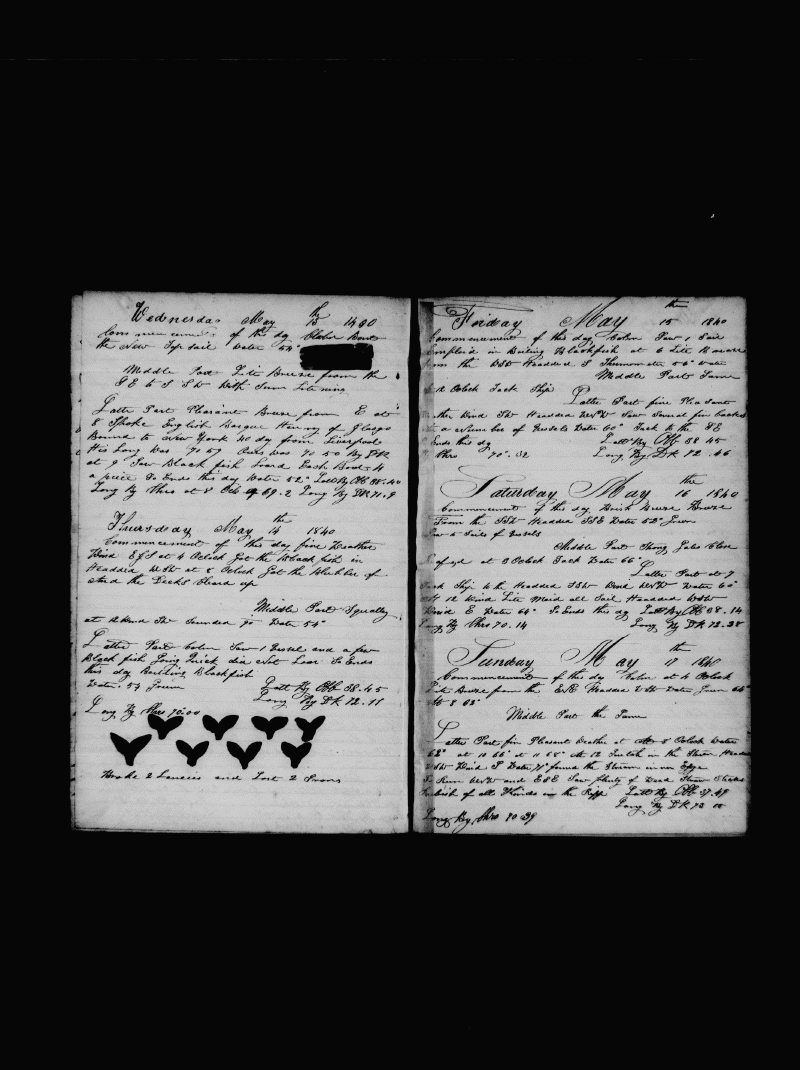 Wednesday May 13th 1840
Commencement of this day Calm Bent
the New Topsail Water 54°
Middle Part Lite Breeze from the
S E b S S W With Sum Litening
Latter Part Pleasant Breeze from E at
8 Spoke English Barque Henry of Glasgo
Bound to New York 40 day from Liverpool
His Long Was 70 57 Ours Was 70 50 By DR
at 9 Saw Black fish Lowrd Each Boat
a piece So Ends this day Water 52° Latt By Ob 38.40
Long By Chro at 8 Oclk 69.2 Long By DR 71.9
Thursday May 14th 1840
Commencement of this day fine Weather
Wind at 4 Oclock Got the Blackfish in
Headded W at 8 Oclock Got the Blubber of
and the Decks Cleard up
Middle Part Squally
at 12 Wind Sounded 70 Water 54°
Latter Part Calm Saw 1 Vessel and a few
Black fish Going Quick did Not Loar So Ends
this day Boiling Blackfish
Water 53 Green Latt By Ob 38.45
Long By DR 72.11
Long By Chro 70.00
Broke 2 Lances and Lost 2 Irons
Friday May 15th 1840
Commencement of this day Calm Saw 1 Sail
Employd in Boiling Blackfish at 6 Lite Breeze
from the WSW Headded S Thermometer 56° Water
Middle Part Same
at 12 Oclock Tack Ship
Latter Part fine Pleasant
Weather Wind SW Headded Saw Several fin backs
a Number of Vessels Water 60° Tack to the SE
Ends this day Latt By Ob 38 45
Chro 70°.32 Long By DR 72.46
Saturday May 16th 1840
Commencement of this day Brisk Breeze
From the SW Headed SSE Water 52° Green
Saw 5 Sails of Vessels
Middle Part Strong Gales Close
Reefd at 8 Oclock Tack Water 66°
Latter Part at 7
Tack Ship to the Headded SSW Wind Water 60°
At 12 Wind Lite Maid all Sail Headded WSW
Wind E Water 64° So Ends this day Latt By Ob 38.14
Long By Chro 70.14 Long By DR 72.38
Sunday May 17th 1840
Commencement of this day Calm at 4 Oclock
Lite Breeze from the Headded Water Green
At 8 63°
Middle Part the Same
Latter Part fine Pleasant Weather at 8 Oclock Water
68° at 10 66° at 11 68° At 12 in the Stream Headed
Wind S Water 71° found the Stream
To Run and ESE Saw plenty of
Rubish of all Kinds in the Ripp Latt By Ob 37.49
Long By DR 72
Long By Chro 70 39